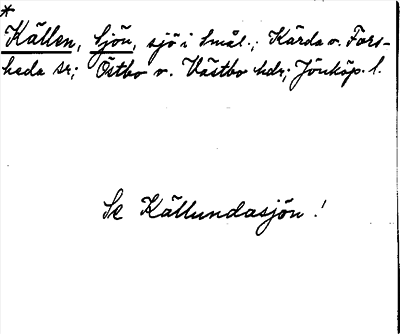 *
Källen, Sjön, sjö i Smål.; Kärda o. Fors-
heda sr; Östbo o. Västbo hdr; Jönköp. l.
Se Källundasjön!